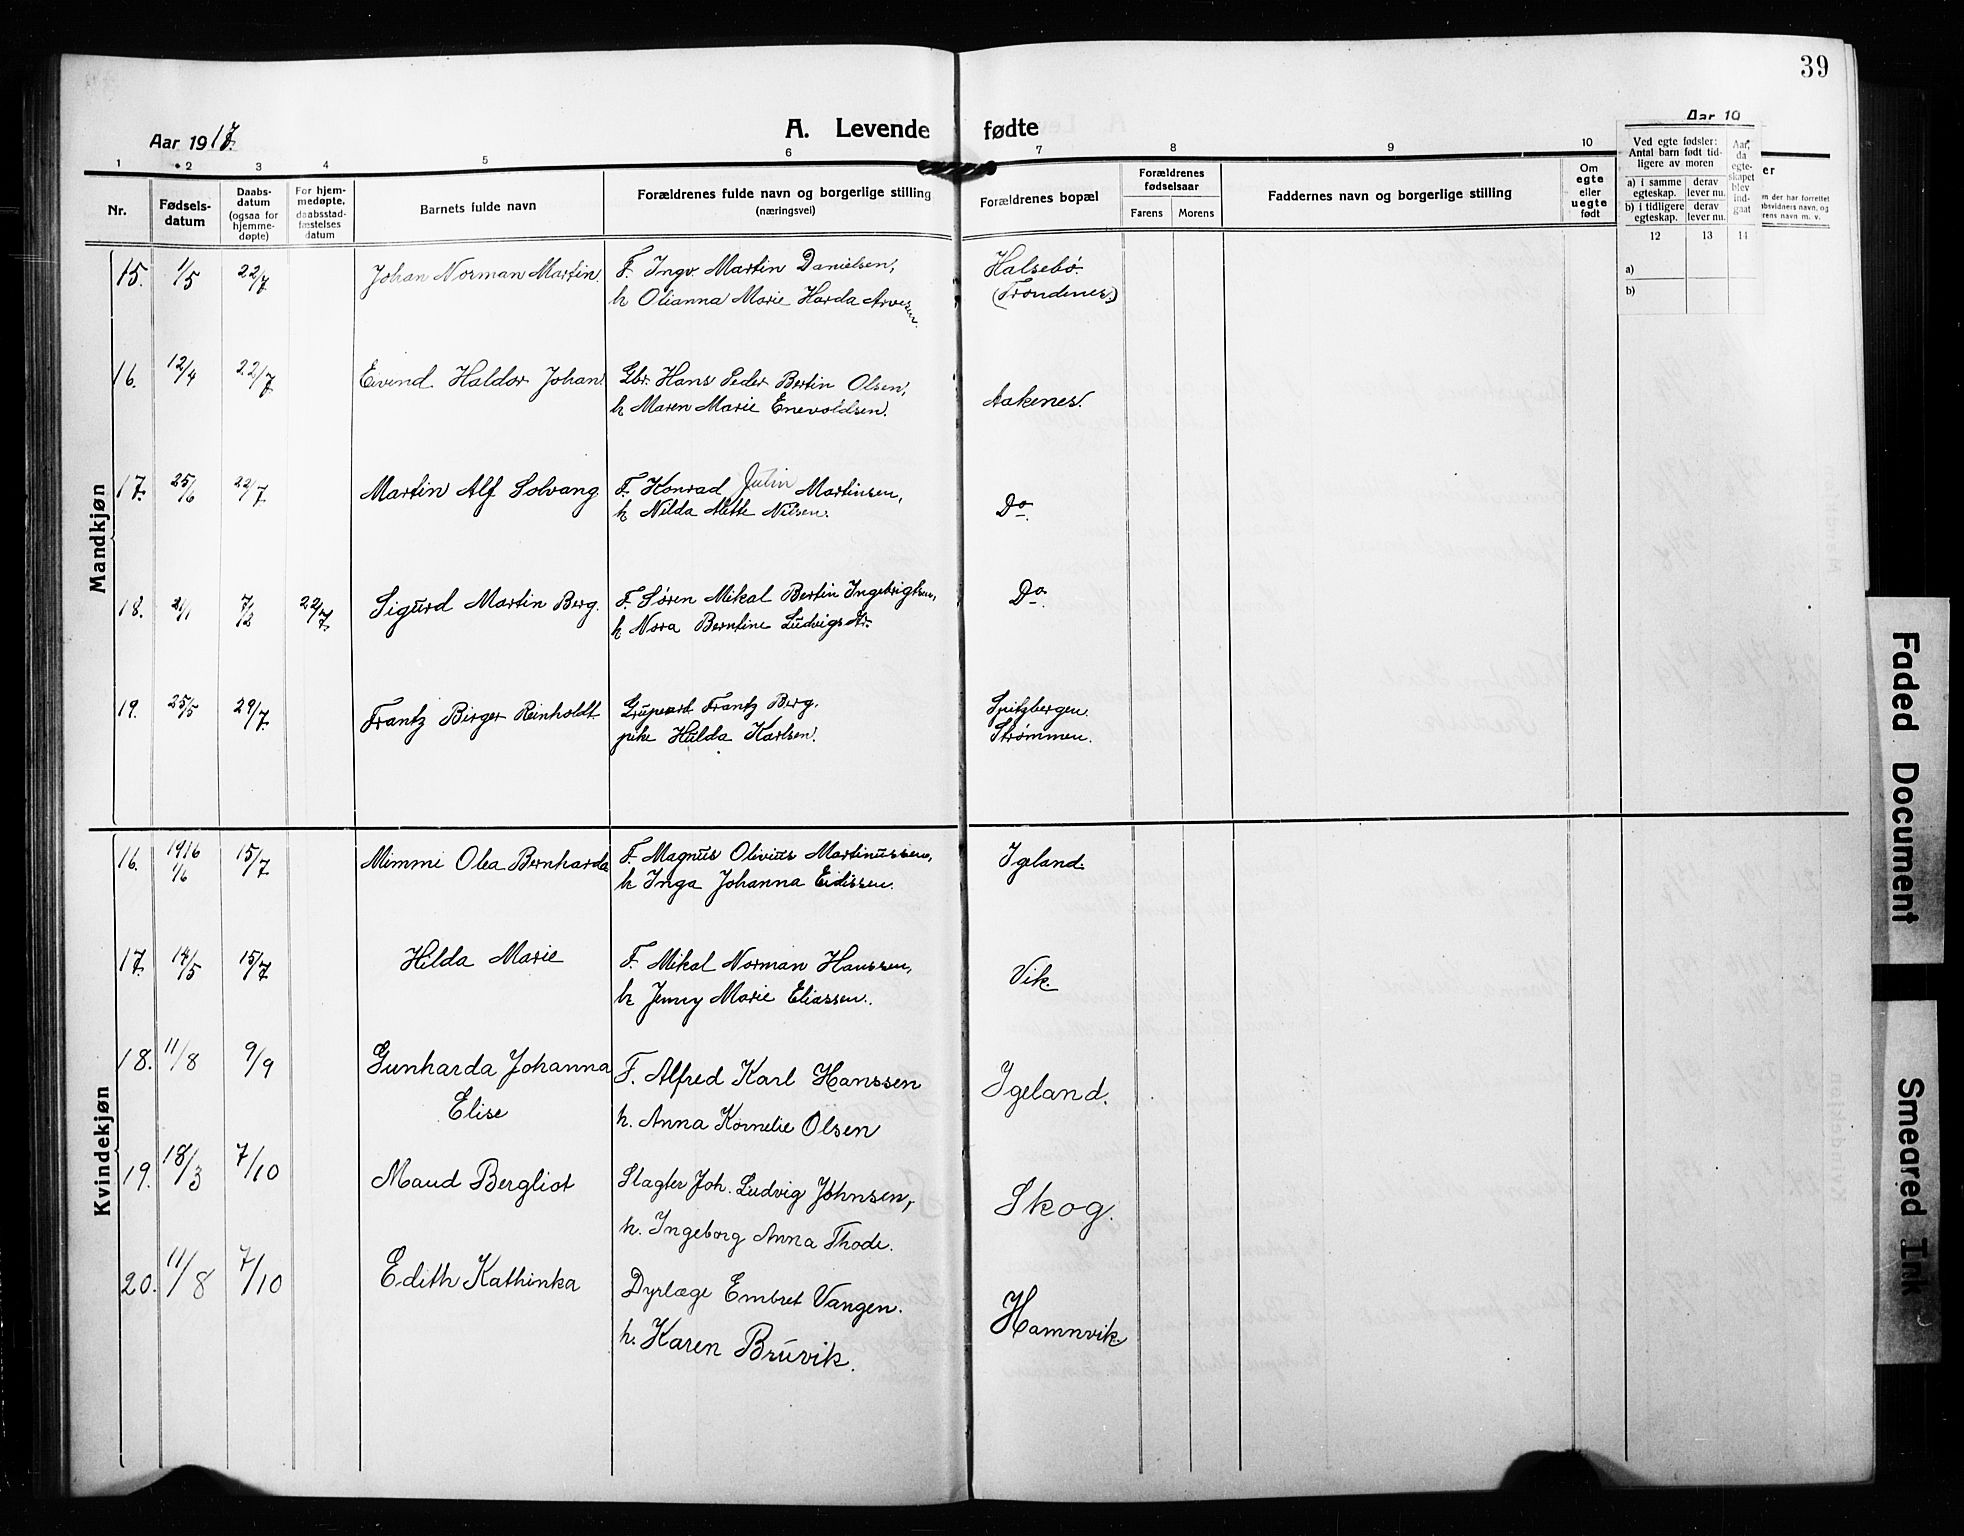 39
A. Levende fødte
Aar 1917.
Aar 19
1 2 3 4 5 6 7 8 9 10
Nr.
Fødsels-
datum
Daabs-
datum
(ogsaa for
hjemme-
døpte)
For hjem-
medøpte,
daabsstad-
fæstelses
datum
Barnets fulde navn
Forældrenes fulde navn og borgerlige stilling
(næringsvei)
Forældrenes bopæl
Forældrenes
fødselsaar
Farens Morens
Faddernes navn og borgerlige stilling
Om
egte
eller
uegte
født
Ved egte fødsler:
Antal barn født tid-
ligere av moren
a) i samme
egteskap.
derav
lever nu.
b) i tidligere
egteskap.
derav
lever nu.
Aar,
da
egte-
skapet
blev
ind-
gaat
12 13 14
a)
b)
er
m der har forrettet
absvidners navn, og
rens navn m. v.
Mandkjøn
15. 1/5 22/7 Johan Norman Martin. F. Ingv. Martin Danielsen, Halsebø.
h Olianna Marie Harda Arvesen. (Trondenes)
16. 12/4 22/7 Eivind Haldor Johan Gbr. Hans Peder Bertin Olsen,
h Maren Marie Enevoldsen. Aakenes.
17. 25/6 22/7 Martin Alf Solvang. F. Konrad Julin Martinsen,
h Nilda Mette Nilsen. Do.
18. 21/1 7/2 22/7 Sigurd Martin Berg. F. Søren Mikal Bertin Ingebrigtsen, Do.
h Nora Berntine Ludvigsdtr.
19. 25/5 29/7 Frantz Birger Reinholdt Frantz Berg. Spitzbergen.
pike Hulda Karlsen. Strømmen.
Kvindekjøn
16. 1916 1/6 15/7 Mimmi Olea Bernharda F. Magnus Olivius Martinussen, Igeland.
h Inga Johanna Eidissen.
17. 14/5 15/7 Hilda Marie F. Mikal Norman Hanssen,
h Jenny Marie Eliassen. Vik.
18. 11/8 9/9 Gunharda Johanna F. Alfred Karl Hanssen Igeland.
Elise h. Anna Kornelie Olsen
19. 18/3 7/10 Maud Bergliot Slagter Joh. Ludvig Johnsen, Skog.
h. Ingeborg Anna Thode.
20. 11/8 7/10 Edith Kathinka Dyrlæge Embret Vangen.
h. Karen Bruvik. Hamnvik.
Faded Document
Smeared Ink